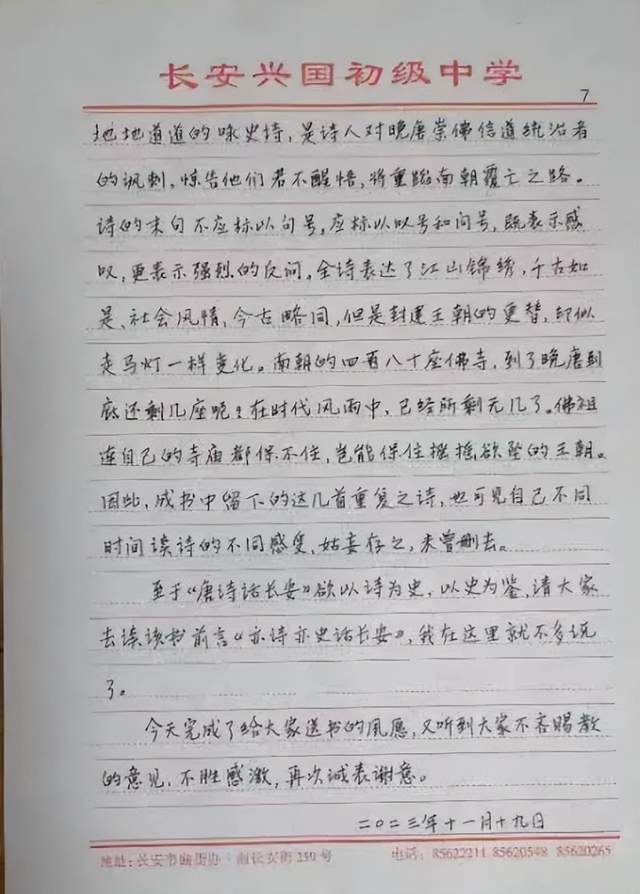 长安兴国初级中学
7
地地道道的咏史诗，是诗人对晚唐崇佛信道统治者
的讽刺，惊告他们若不醒悟，将重蹈南朝覆亡之路。
诗的末句不应标以句号，应标以叹号和问号，既表示感
叹，更表示强烈的反问。全诗表达了江山锦绣，千古如
是、社会风情，今古略同，但是封建王朝的更替，却似
走马灯一样变化。南朝的四百八十座佛寺，到了晚唐到
底还剩几座呢？在时代风雨中，已经所剩无几了。佛祖
连自己的寺庙都保不住，岂能保住摇摇欲坠的王朝。
因此，成书中留下的这几首重复之诗，也可见自己不同
时间读诗的不同感受，姑妄存之，未曾删去。
至于《唐诗话长安》欲以诗为史，以史为鉴，请大家
去读该书前言《亦诗亦史话长安》，我在这里就不多说
了。
今天完成了给大家送书的夙愿，又听到大家不吝赐教
的意见，不胜感激，再次诚表谢意。
二〇二三年十一月十九日
地址：长安韦曲街办 南长安街250号 电话：85622211 85620548 85620265